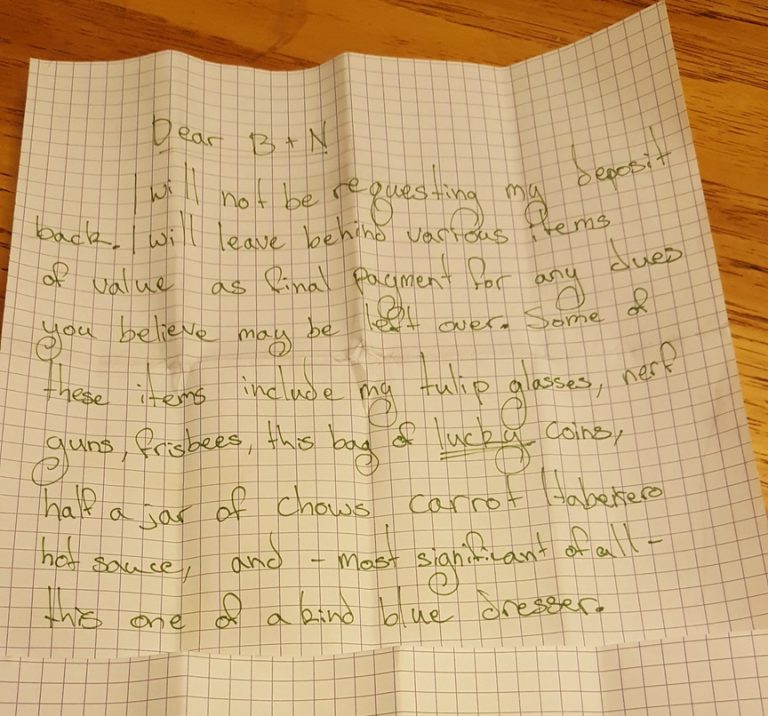 Dear B + N
I will not be requesting my deposit
back. I will leave behind various items
of value as final payment for any dues
you believe may be left over. Some of
these items include my tulip glasses, nerf
guns, frisbees, this bag of lucky coins,
half a jar of chows carrot Habenero
hot sauce, and - most significant of all -
this one of a kind blue dresser.